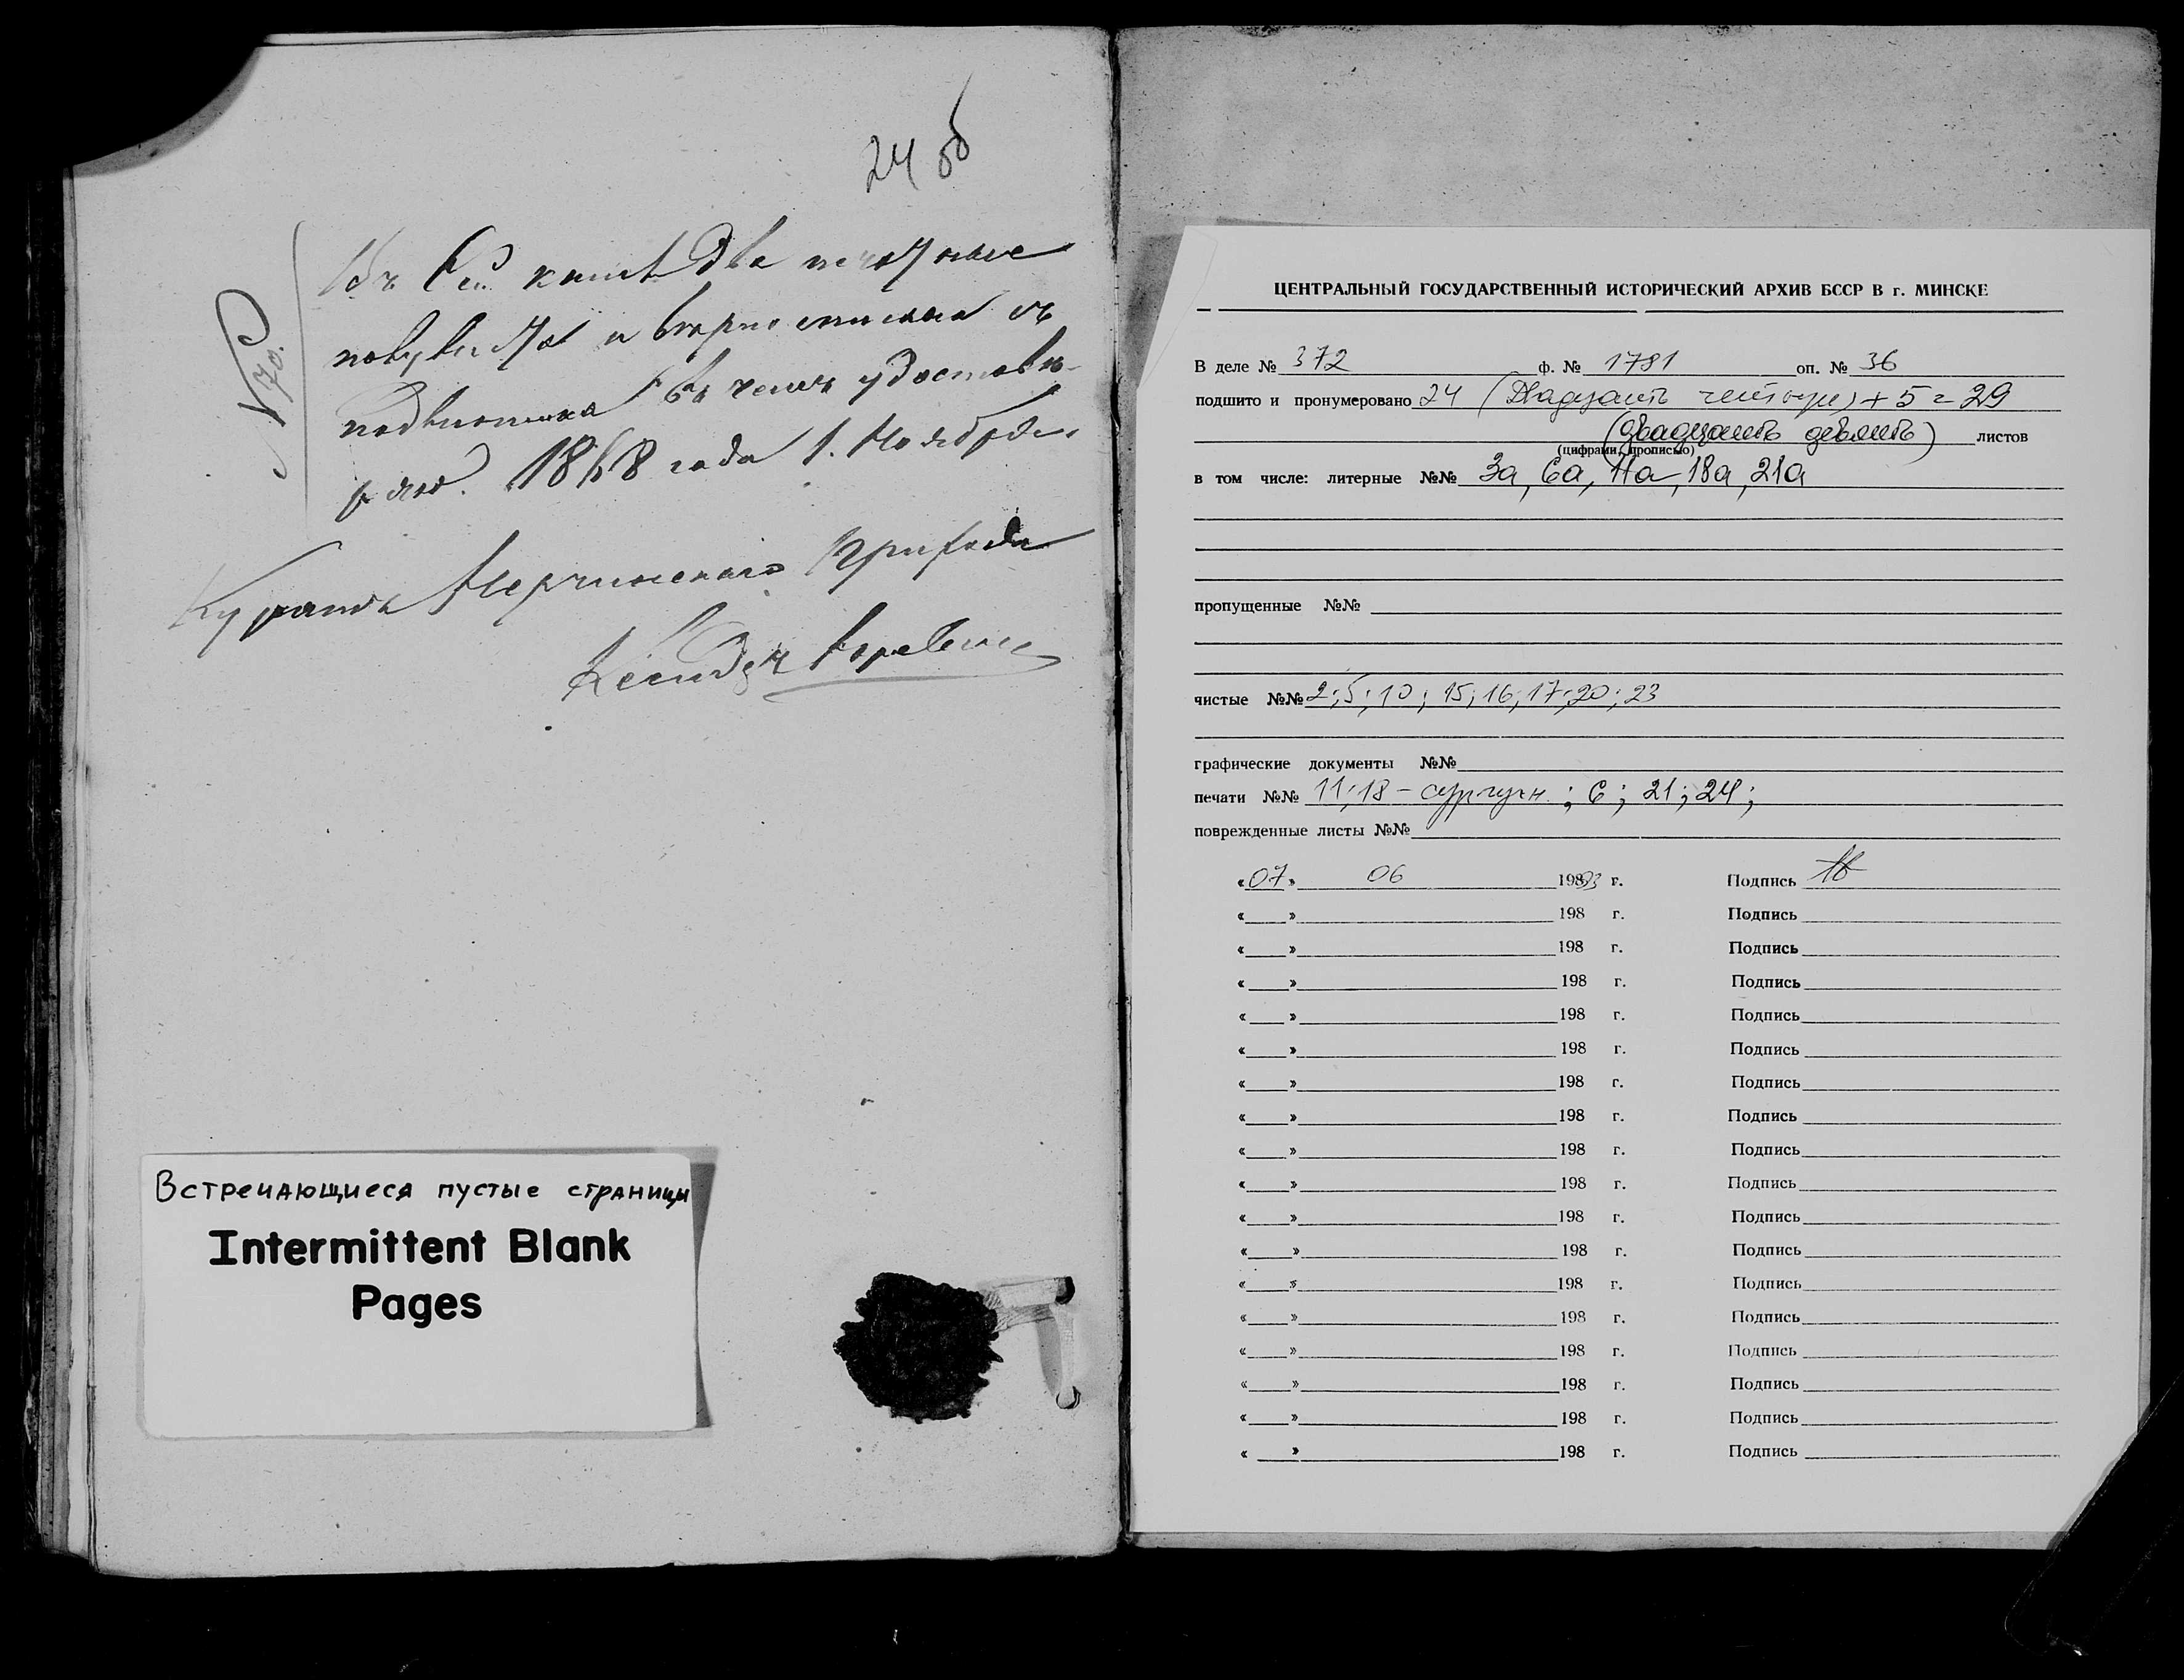 24 об
№ 70.
Въ сей книгѣ два
и съ
въ чемъ удостовѣ-
ряю. 1868 года 1. Ноября
Приход
Ксендзъ
Встречающиеся пустые страницы
Intermittent Blank
Pages
ЦЕНТРАЛЬНЫЙ ГОСУДАРСТВЕННЫЙ ИСТОРИЧЕСКИЙ АРХИВ БССР В г. МИНСКЕ
В деле № 372 ф. № 1781 оп. № 36
подшито и пронумеровано 24 (Двадцать четыре) + 5 = 29
(двадцать девять) листов
(цифрами, прописью)
в том числе: литерные №№ 3а, 6а, 11а, 18а, 21а
пропущенные №№
чистые №№ 2; 5; 10; 15; 16; 17; 20; 23
графические документы №№
печати №№ 11; 18 - сургучн.; 6; 21; 24;
поврежденные листы №№
«07» 06 1993 г. Подпись
«___» 198 г. Подпись
«___» 198 г. Подпись
«___» 198 г. Подпись
«___» 198 г. Подпись
«___» 198 г. Подпись
«___» 198 г. Подпись
«___» 198 г. Подпись
«___» 198 г. Подпись
«___» 198 г. Подпись
«___» 198 г. Подпись
«___» 198 г. Подпись
«___» 198 г. Подпись
«___» 198 г. Подпись
«___» 198 г. Подпись
«___» 198 г. Подпись
«___» 198 г. Подпись
«___» 198 г. Подпись